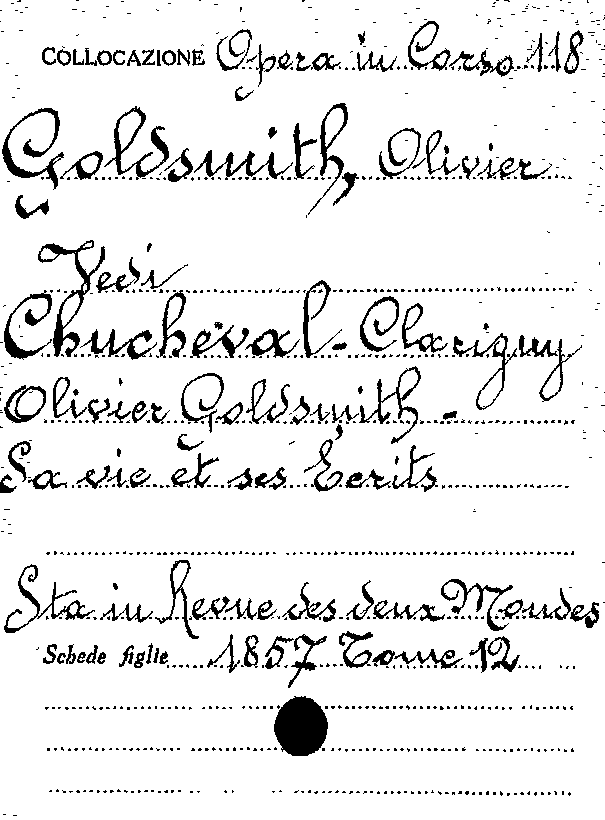 COLLOCAZIONE Opera in Corso 118
Goldsmith, Olivier
Vedi
Chucheval-Clarigny
Olivier Goldsmith -
Sa vie et ses Ecrits
Sta in Revue des deux Mondes
Schede figlie 1857 Tome 12